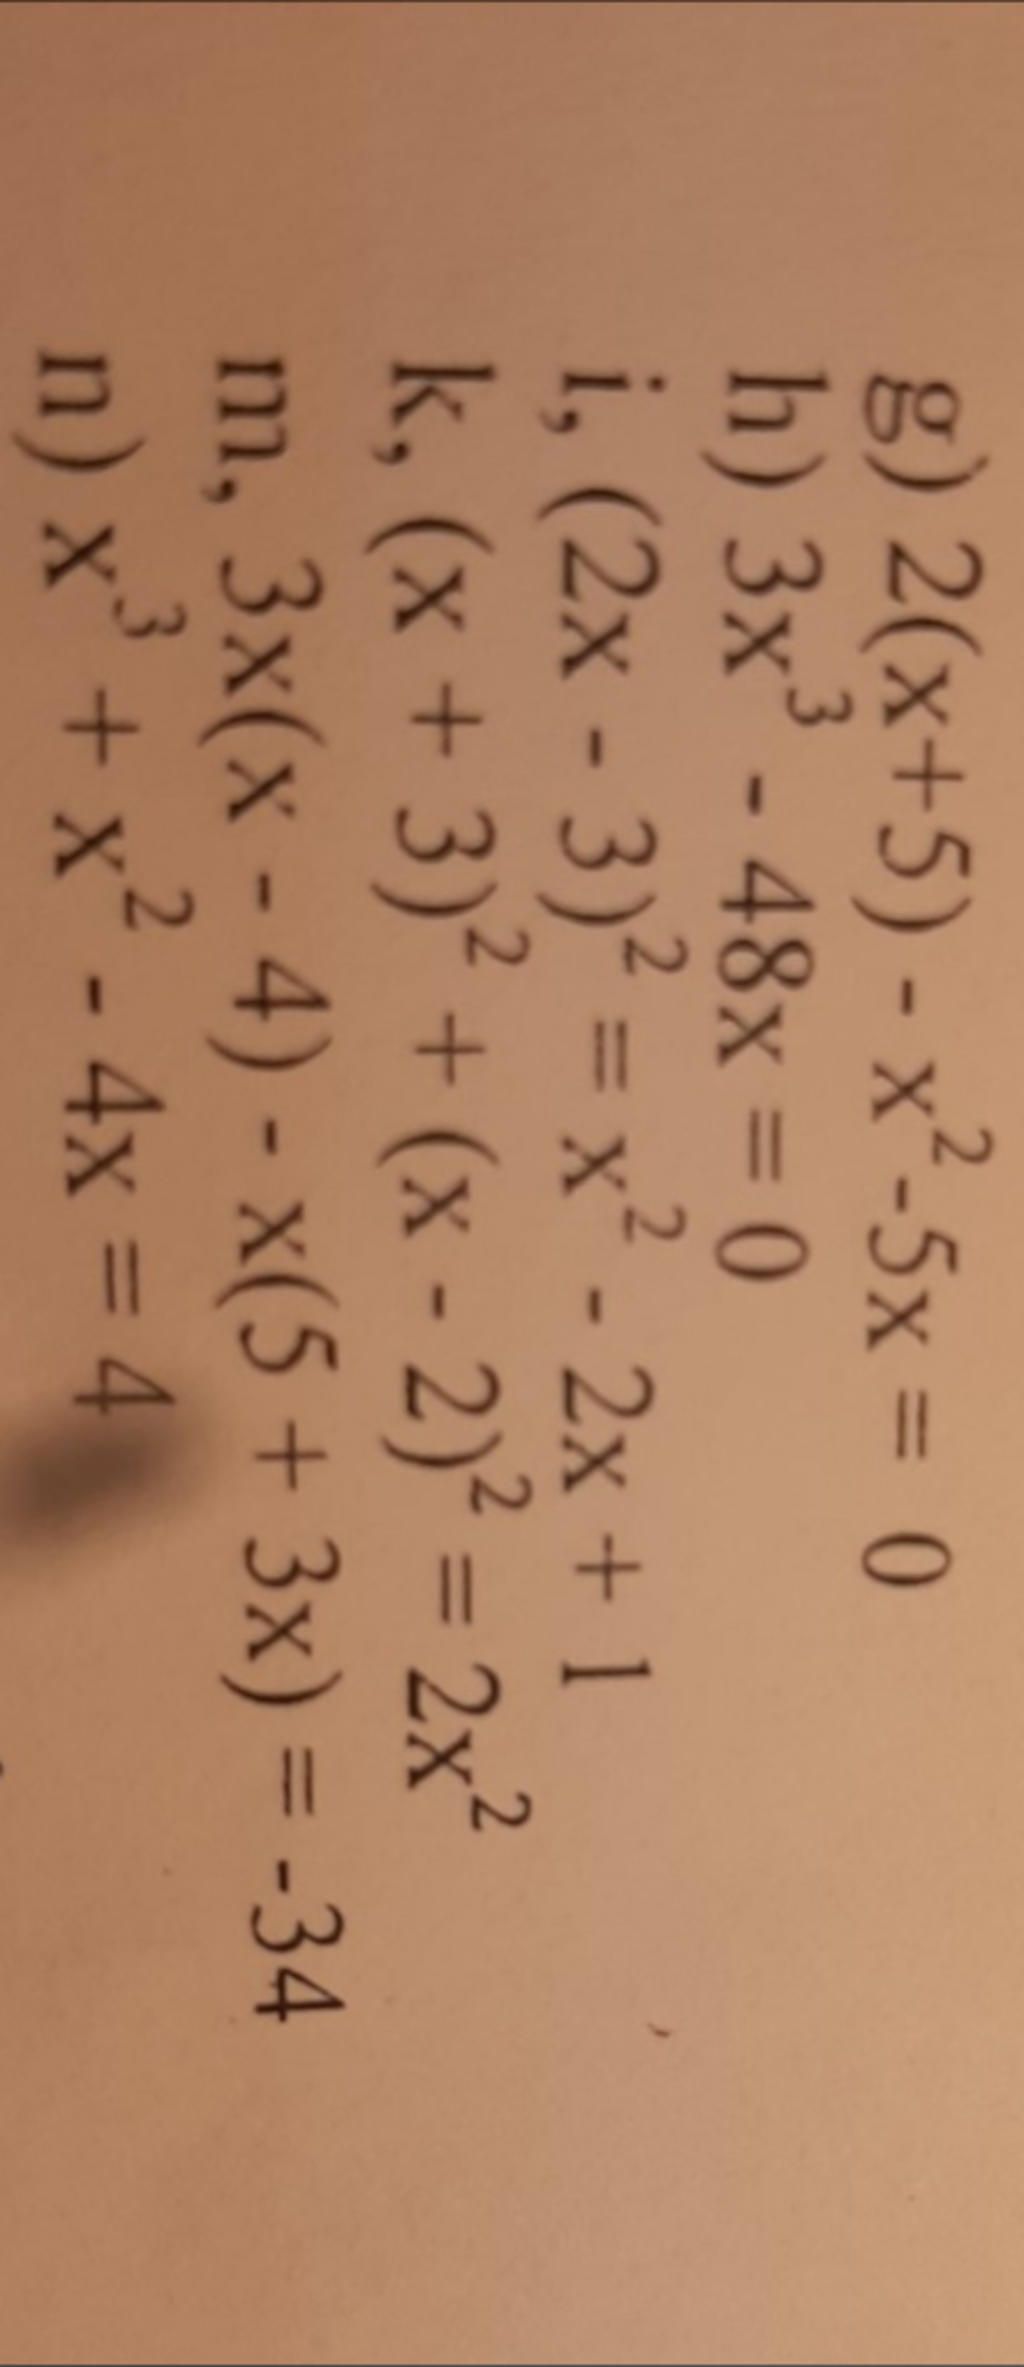 g) 2(x+5) - x²-5x = 0
h) 3x³ - 48x = 0
i, (2x - 3)² = x² - 2x + 1
k, (x + 3)² + (x - 2)² = 2x²
m, 3x(x - 4) - x(5 + 3x) = -34
n) x³ + x² - 4x = 4